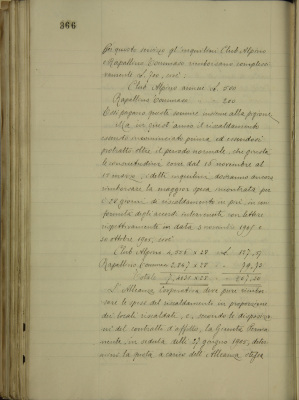 366
Per questo servizio gli inquilini Club Alpino
e Rapallino Tommaso rimborsano complessi-
vamente £ 700, cioè:
Club Alpino annue £ 500
Rapallino Tommaso " 200
Essi pagano queste somme insieme alla pigione.
Ma in quest'anno il riscaldamento
essendo incominciato prima, ed essendosi
protratto oltre il periodo normale, che giusta
le consuetudini corre dal 15 novembre al
15 marzo, i detti inquilini dovranno ancora
rimborsare la maggior spesa incontrata per
i 28 giorni di riscaldamento in più, in con-
formità degli accordi intervenuti con lettere
rispettivamente in data 3 novembre 1905 e
30 ottobre 1905, cioè:
Club Alpino x 28 £
Rapallino Tommaso x 28 "
Totale x 28
L'Alleanza Cooperativa deve pure rimbor-
sare le spese del riscaldamento in proporzione
dei locali riscaldati, e, secondo le disposizio-
ni del contratto d'affitto, la Giunta Perma-
nente, in seduta delli 27 giugno 1905, deter-
minò la quota a carico dell'Alleanza